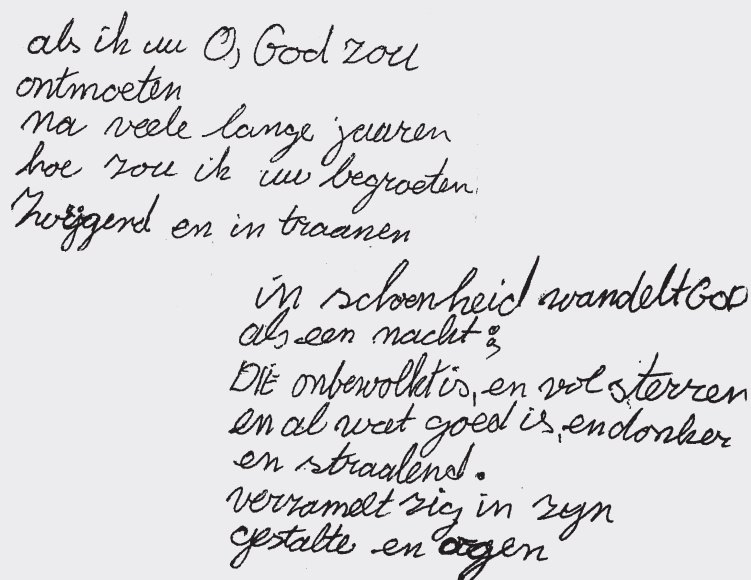 als ik uw O, God zou
ontmoeten
na veele lange jaaren
hoe zou ik uw begroeten
Zwijgend en in traanen
in schoenheid wandelt GOD
als een nacht;
DIE onbewolkt is, en vol sterren
en al wat goed is, en donker
en straalend.
verzamelt zig in zyn
gestalte en ogen